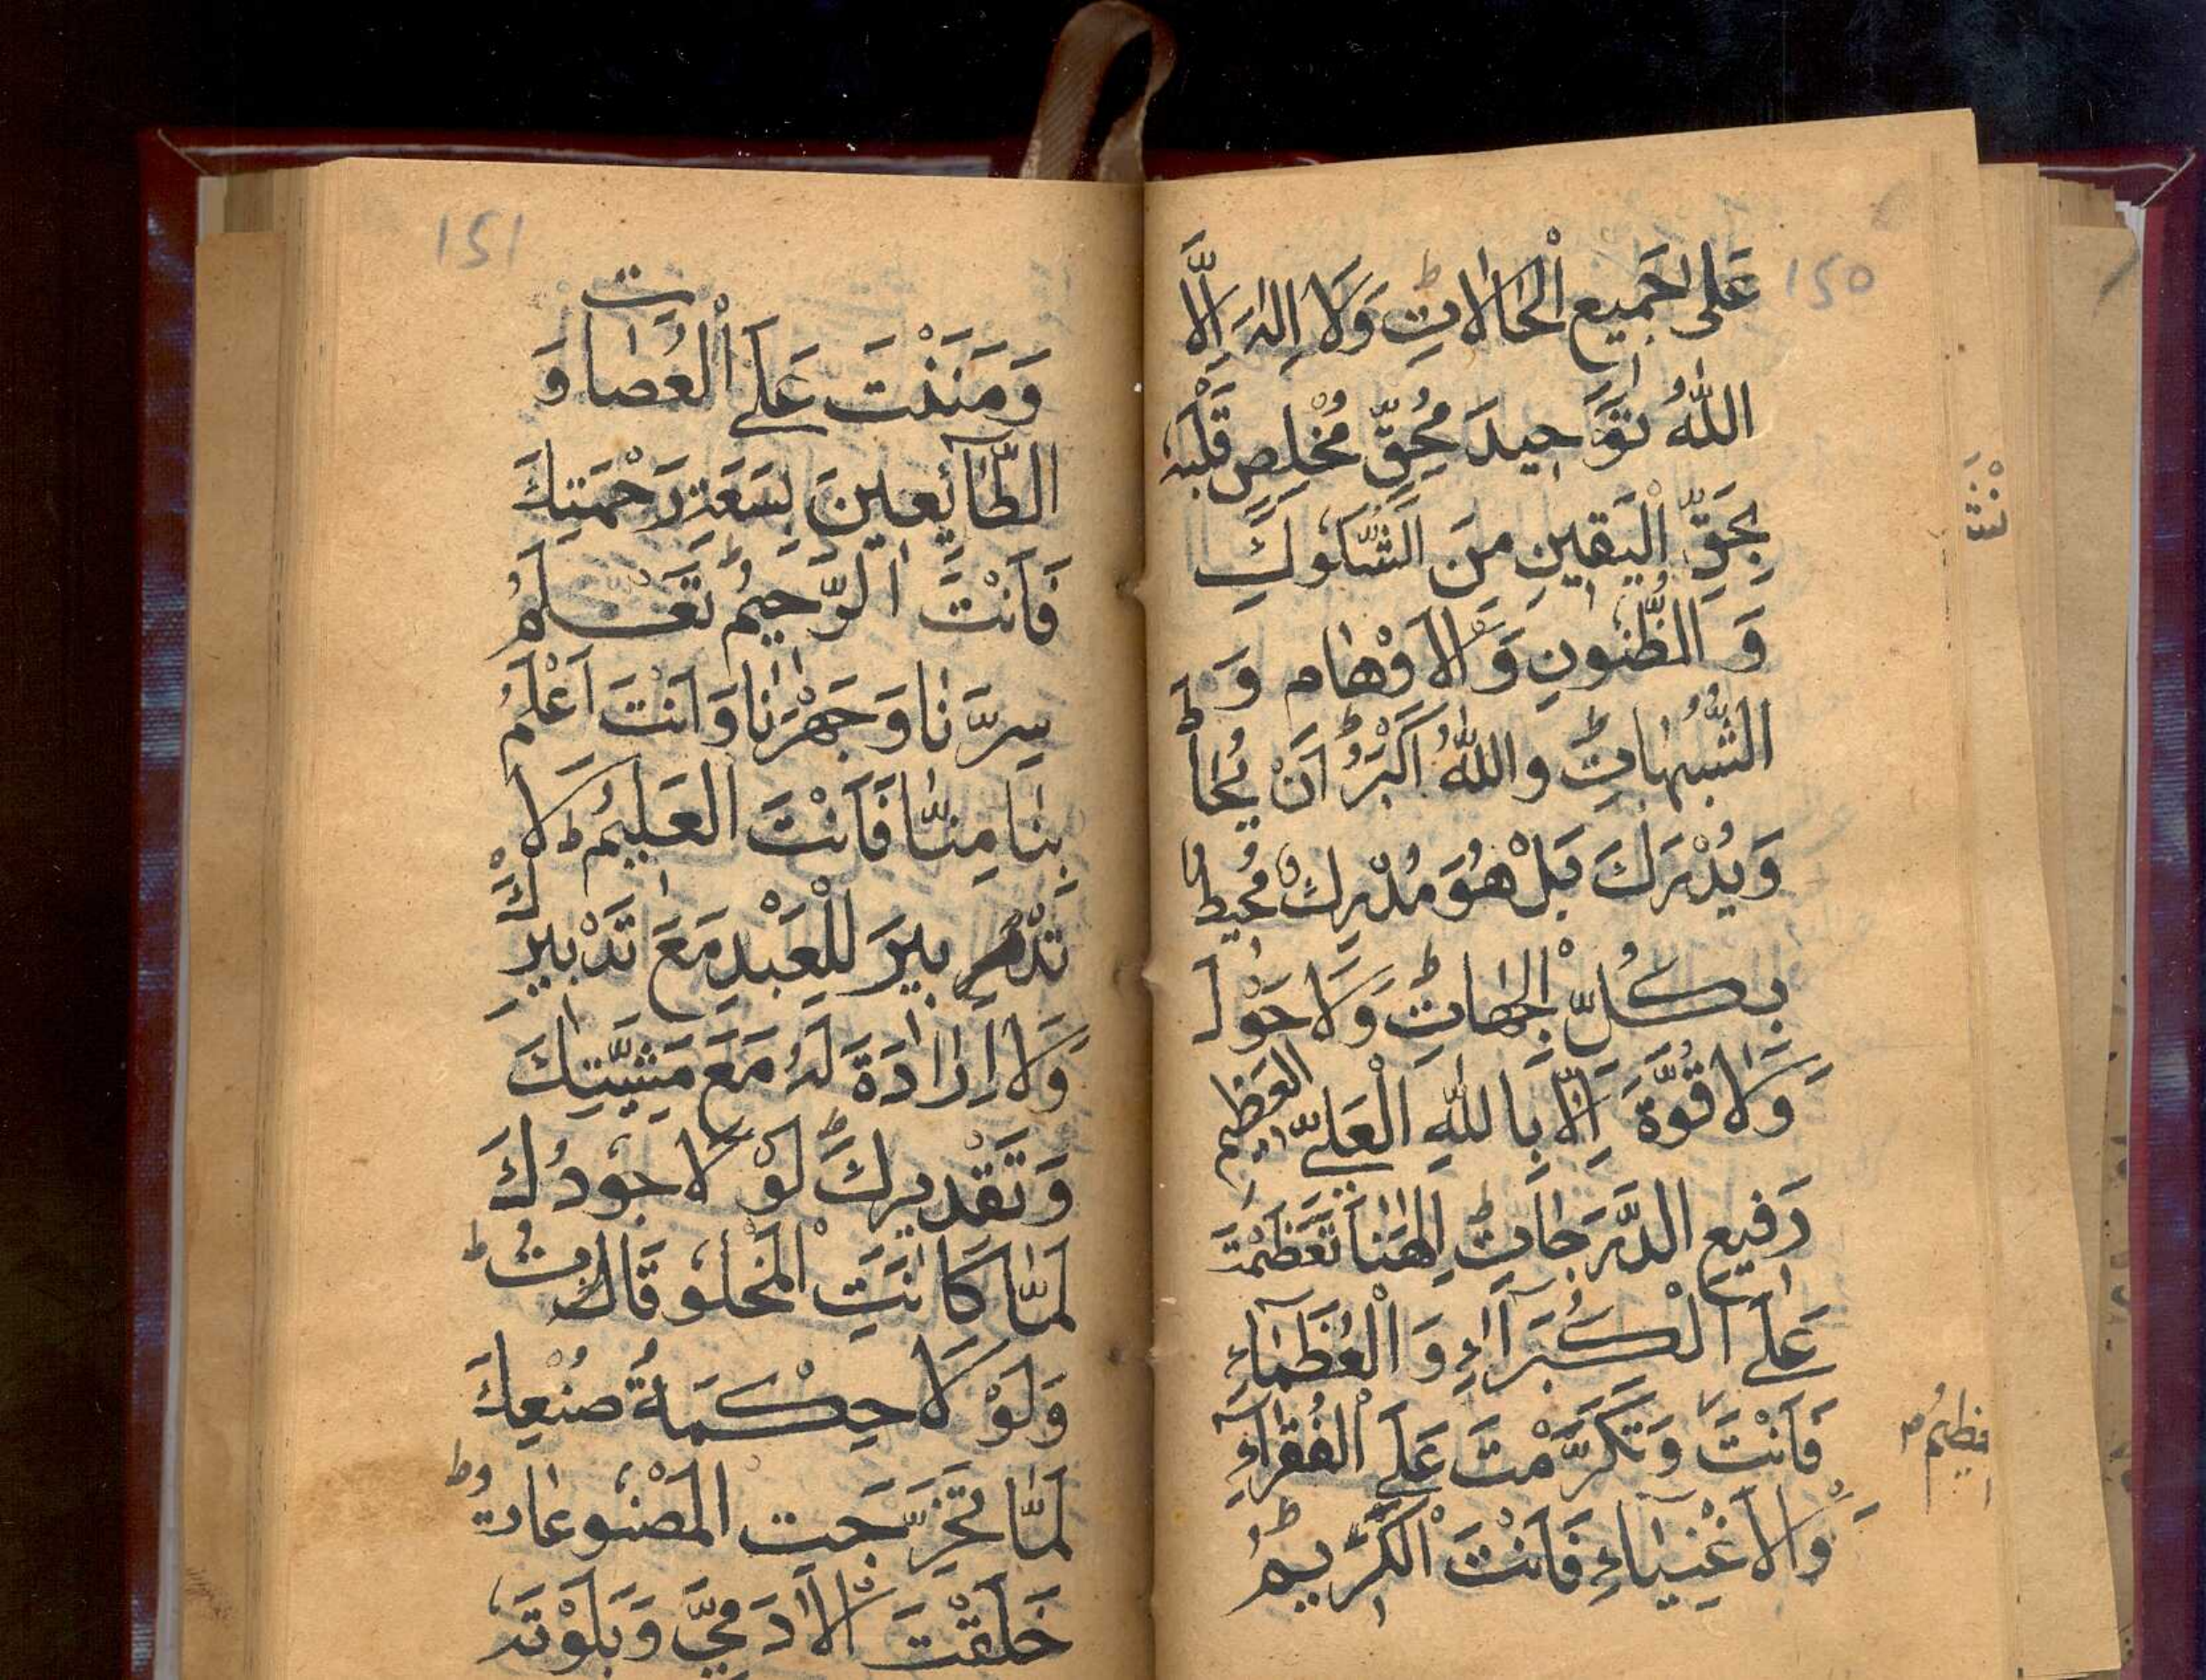 150
عَلٰى جَمِيعِ الْحَالَاتِ ط وَلَا اِلٰهَ اِلَّا
اللّٰهُ تَوْحِيدَ مُحِقٍّ مُخْلِصٍ قَلْبُهُ
بِحَقِّ الْيَقِينِ مِنَ الشُّكُوكِ
وَ الظُّنُونِ وَالْاَوْهَامِ وَ
الشُّبُهَاتِ ط وَاللّٰهُ اَكْبَرُ ط اَنْ يُحَاطَ
وَيُدْرَكَ بَلْ هُوَ مُدْرِكٌ مُحِيطٌ
بِكُلِّ الْجِهَاتِ ط وَلَا حَوْلَ
وَلَا قُوَّةَ اِلَّا بِاللّٰهِ الْعَلِيِّ الْعَظِيمِ
رَفِيعِ الدَّرَجَاتِ ط اِلٰهَنَا تَعَظَّمْتَ
عَلَى الْكُبَرَآءِ وَ الْعُظَمَآءِ
فَاَنْتَ وَتَكَرَّمْتَ عَلَى الْفُقَرَآءِ
وَالْاَغْنِيَآءِ فَاَنْتَ الْكَرِيمُ ط
151
وَمَنَنْتَ عَلَى الْعُصَاتِ وَ
الطَّآئِعِينَ بِسَعَةِ رَحْمَتِكَ
فَاَنْتَ الرَّحِيمُ ط تَعْلَمُ
سِرَّنَا وَجَهْرَنَا وَاَنْتَ اَعْلَمُ
بِنَا مِنَّا فَاَنْتَ الْعَلِيمُ ط لَا
تَدْبِيرَ لِلْعَبْدِ مَعَ تَدْبِيرِكَ
وَلَا اِرَادَةَ لَهُ مَعَ مَشِيَّتِكَ
وَتَقْدِيرِكَ ط لَوْ لَا جُودُكَ
لَمَّا كَانَتِ الْمَخْلُوقَاتُ ط
وَلَوْ لَا حِكْمَةُ صُنْعِكَ
لَمَّا تَخَرَّجَتِ الْمَصْنُوعَاتُ ط
خَلَقْتَ الْاٰدَمِيَّ وَبَلَوْتَهُ